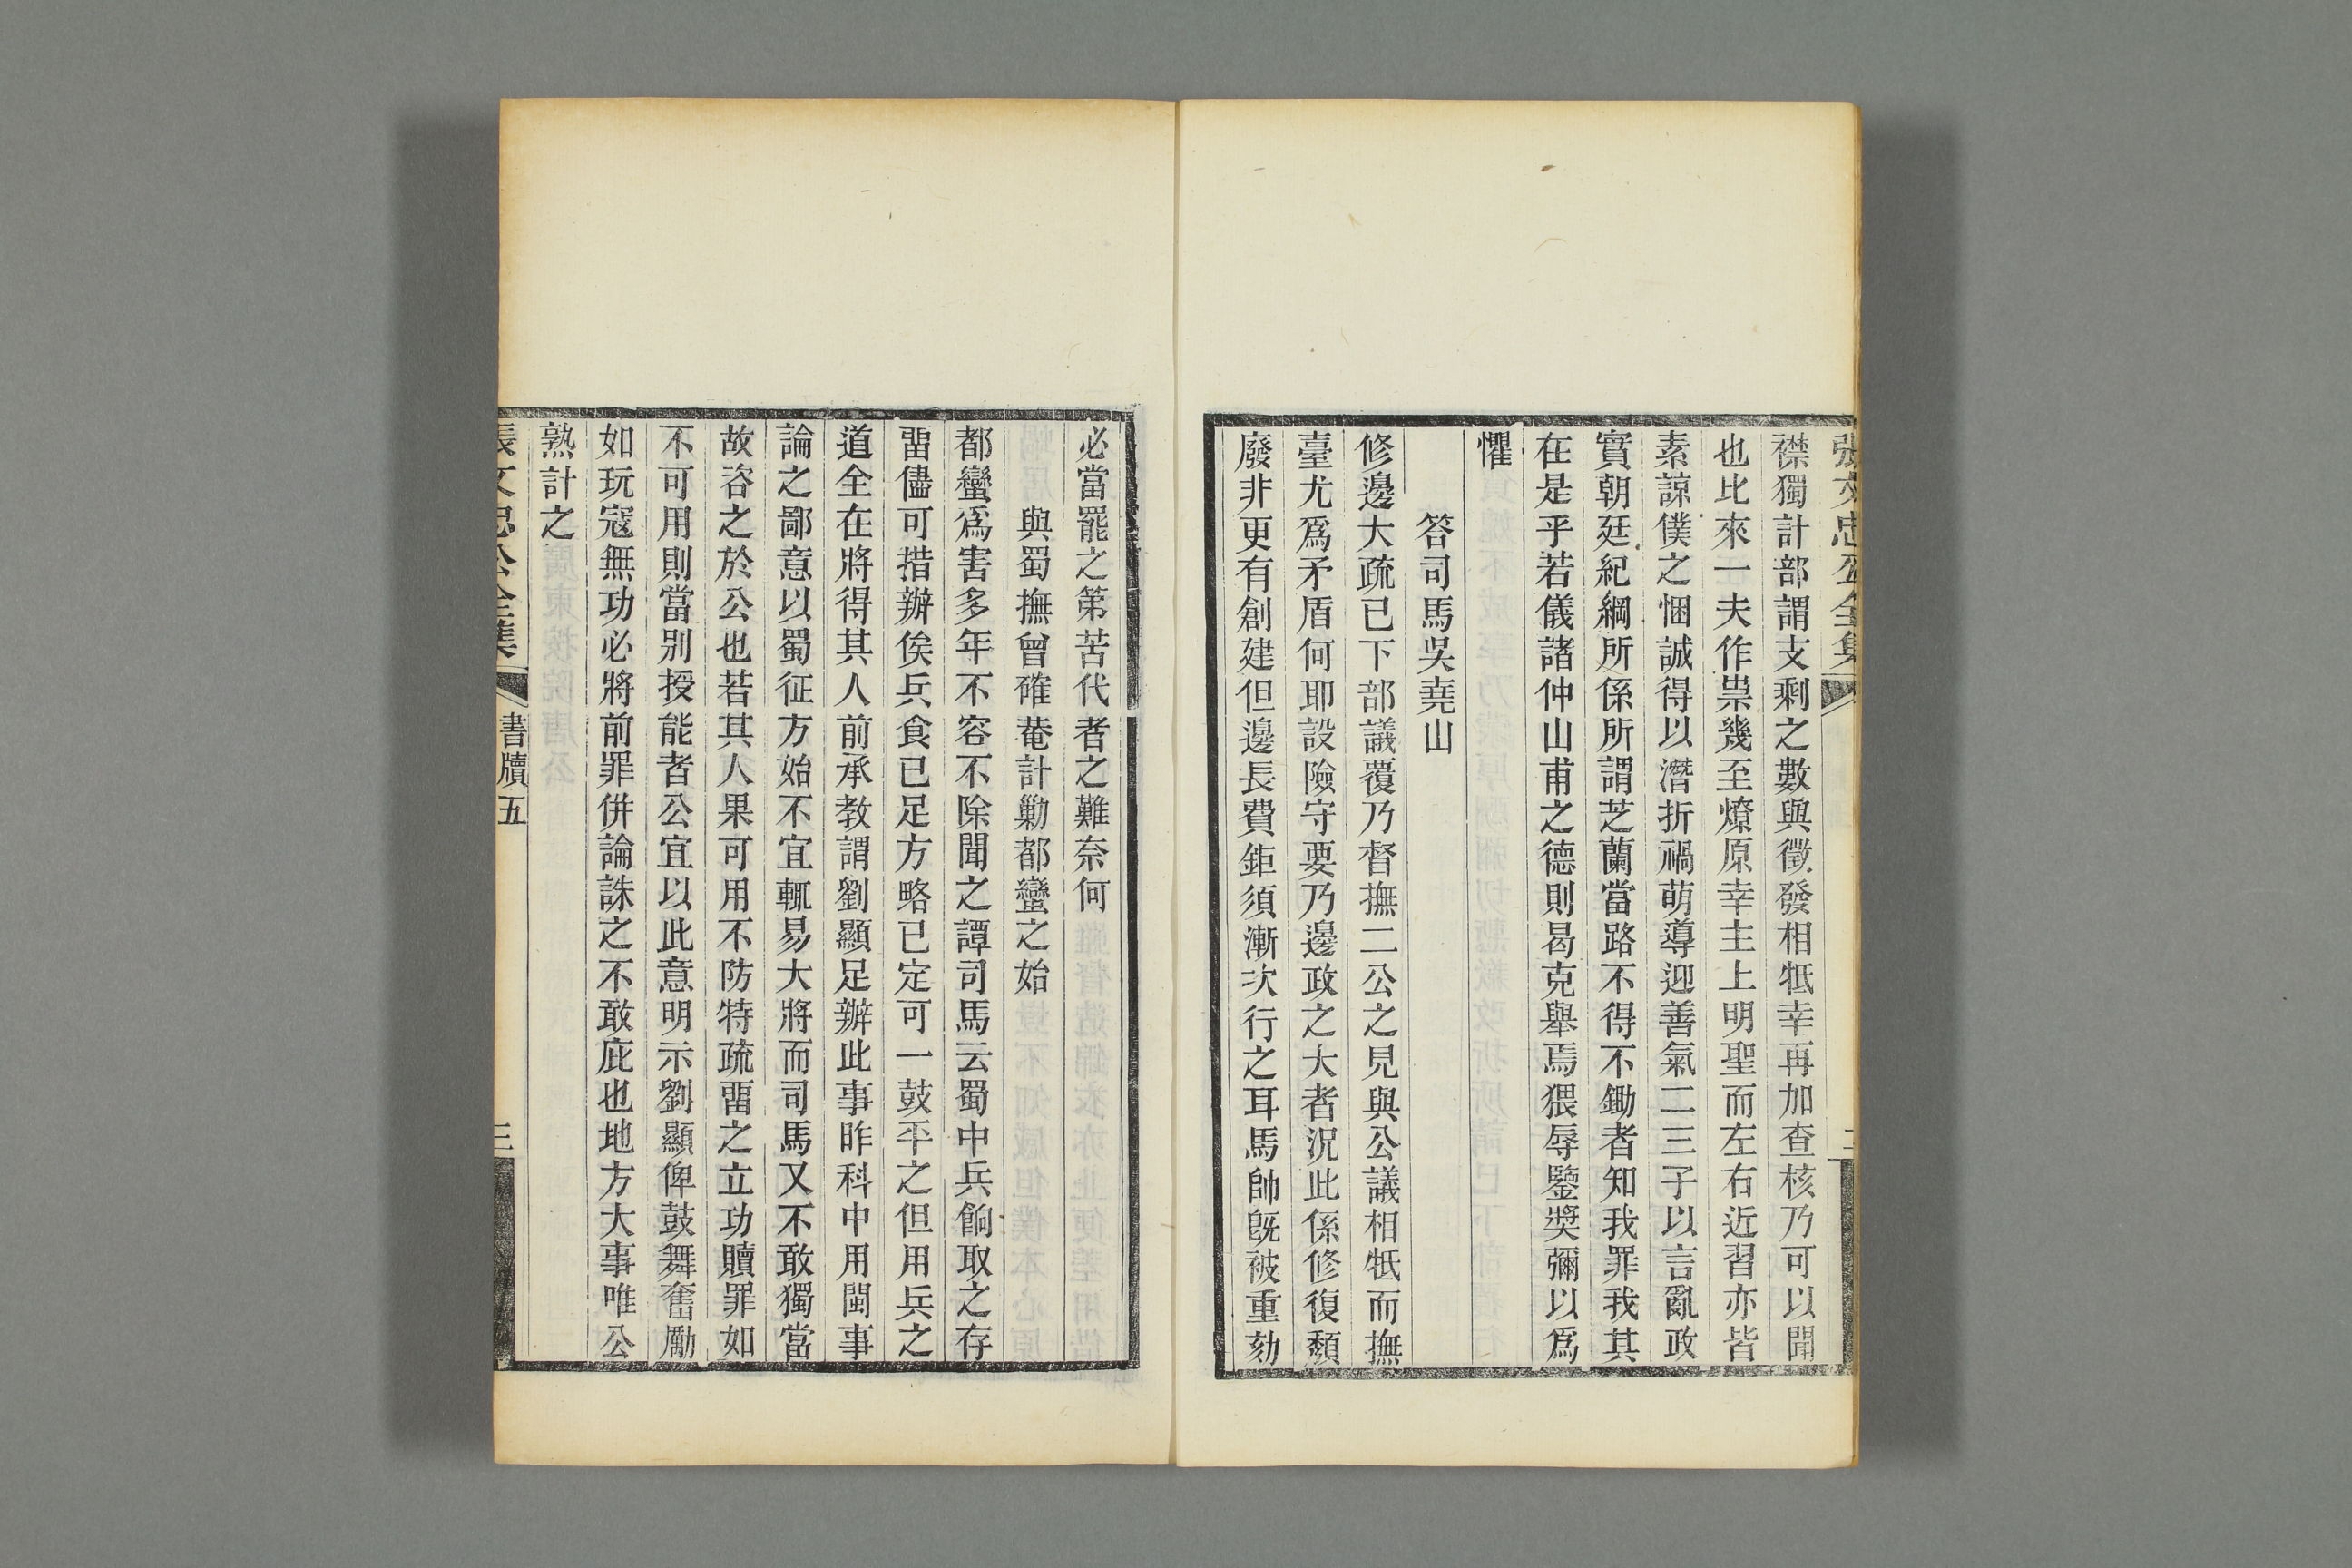 張文忠公全集
二
襟獨計部謂支剩之數與徵發相牴幸再加查核乃可以聞
也比來一夫作祟幾至燎原幸主上明聖而左右近習亦皆
素諒僕之悃誠得以潛折禍萌導迎善氣二三子以言亂政
實朝廷紀綱所係所謂芝蘭當路不得不鋤者知我罪我其
在是乎若儀諸仲山甫之德則曷克舉焉猥辱鑒獎彌以爲
懼
答司馬吳堯山
修邊大疏已下部議覆乃督撫二公之見與公議相牴而撫
臺尤爲矛盾何耶設險守要乃邊政之大者況此係修復頹
廢非更有創建但邊長費鉅須漸次行之耳馬帥旣被重劾
必當罷之第苦代者之難奈何
與蜀撫曾確菴計勦都蠻之始
都蠻爲害多年不容不除聞之譚司馬云蜀中兵餉取之存
畱儘可措辦俟兵食已足方略已定可一鼓平之但用兵之
道全在將得其人前承教謂劉顯足辦此事昨科中用閩事
論之鄙意以蜀征方始不宜輒易大將而司馬又不敢獨當
故咨之於公也若其人果可用不防特疏畱之立功贖罪如
不可用則當別授能者公宜以此意明示劉顯俾鼓舞奮勵
如玩寇無功必將前罪併論誅之不敢庇也地方大事唯公
熟計之
張文忠公全集
書牘五
三